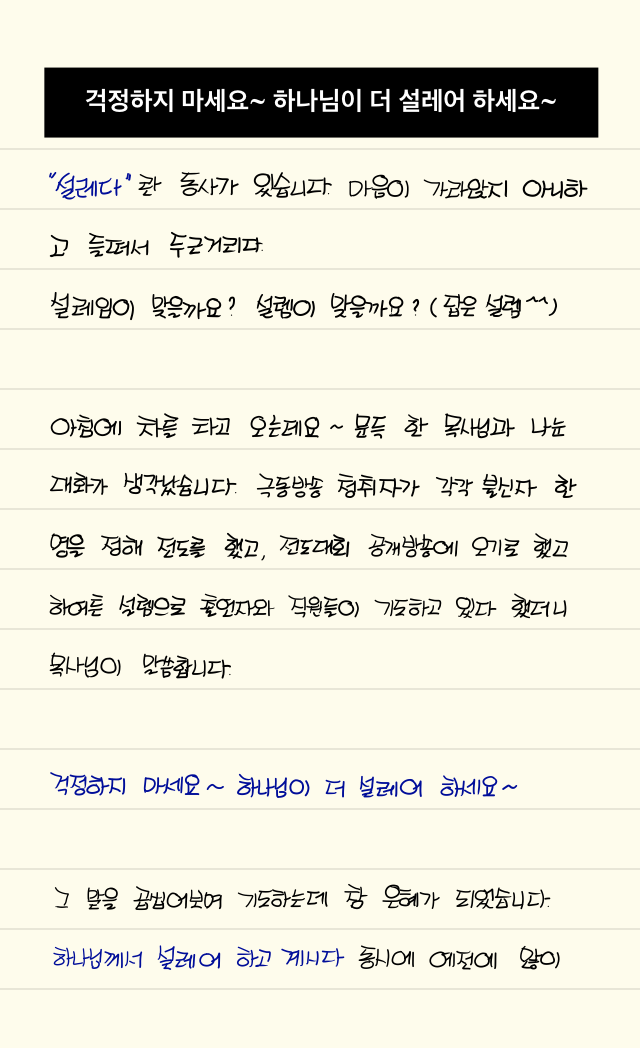 걱정하지 마세요~ 하나님이 더 설레어 하세요~
"설레다"란 동사가 있습니다. 마음이 가라앉지 아니하
고 들떠서 두근거리다.
설레임이 맞을까요? 설렘이 맞을까요? (답은 설렘^^)
아침에 차를 타고 오는데요~ 문득 한 목사님과 나눈
대화가 생각났습니다. 극동방송 청취자가 각각 불신자 한
명을 정해 전도를 했고, 전도대회 공개방송에 오기로 했고
하여튼 설렘으로 출연자와 직원들이 기도하고 있다 했더니
목사님이 말씀합니다.
걱정하지 마세요~ 하나님이 더 설레어 하세요~
그 말을 곱씹어보며 기도하는데 참 은혜가 되었습니다.
하나님께서 설레어 하고 계시다 동시에 예전에 많이